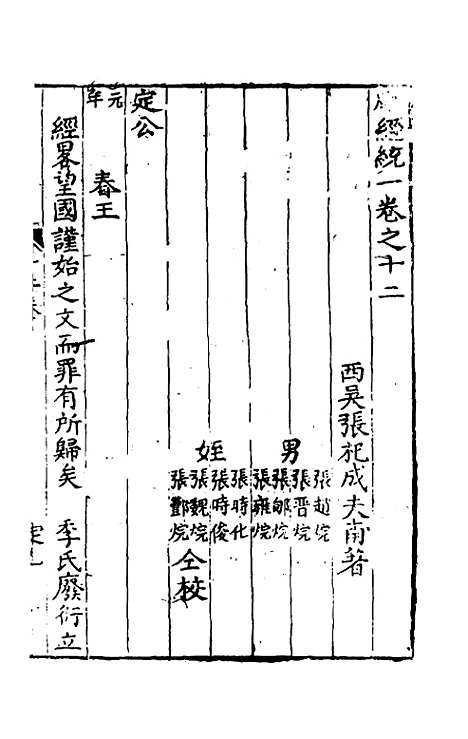 經統一卷之十二
西吳張杞成夫甫著
男
張趙烷
張晉烷
張郇烷
張雍烷
姪
張時化
張時俊
張魏烷
張酆烷
仝校
定公
元年
春王
經畧望國謹始之文而罪有所歸矣 季氏廢衍立